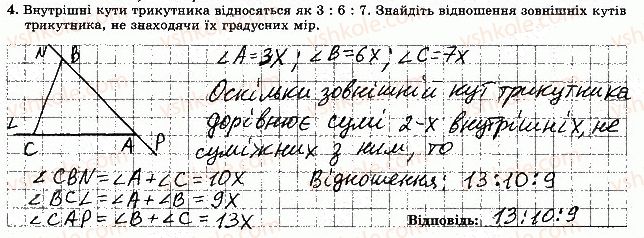 4. Внутрішні кути трикутника відносяться як 3 : 6 : 7. Знайдіть відношення зовнішніх кутів
трикутника, не знаходячи їх градусних мір.
N B
∠A=3x; ∠B=6x; ∠C=7x
Оскільки зовнішній кут трикутника
дорівнює сумі 2-х внутрішніх, не
суміжних з ним, то
L C A P
∠CBN=∠A+∠C=10x
Відношення: 13:10:9
∠BCL=∠A+∠B=9x
∠CAP=∠B+∠C=13x
Відповідь: 13:10:9